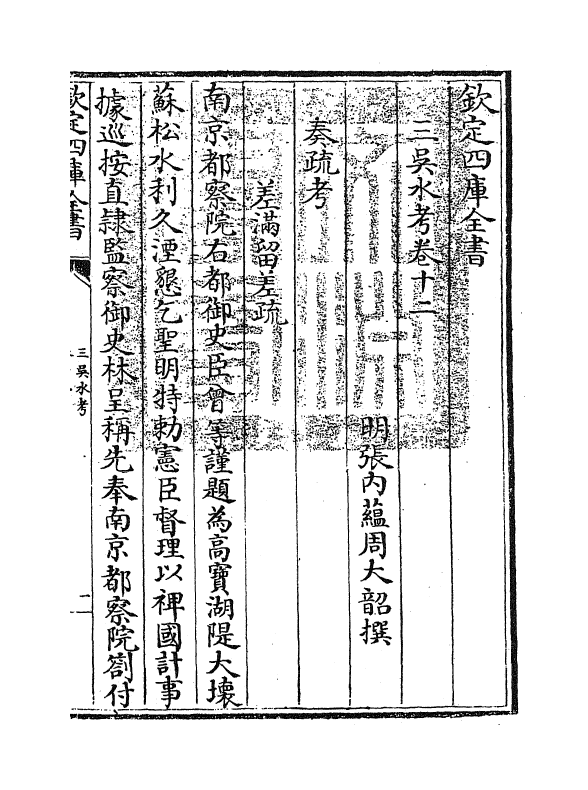 欽定四庫全書
三吳水考卷十二
明張内藴周大韶撰
奏疏考
差滿留差疏
南京都察院右都御史臣曾等謹題為高寶湖隄大壊
蘇松水利久湮懇乞聖明特勅憲臣督理以裨國計事
據巡按直隷監察御史林呈稱先奉南京都察院劄付
欽定四庫全書
三吳水考